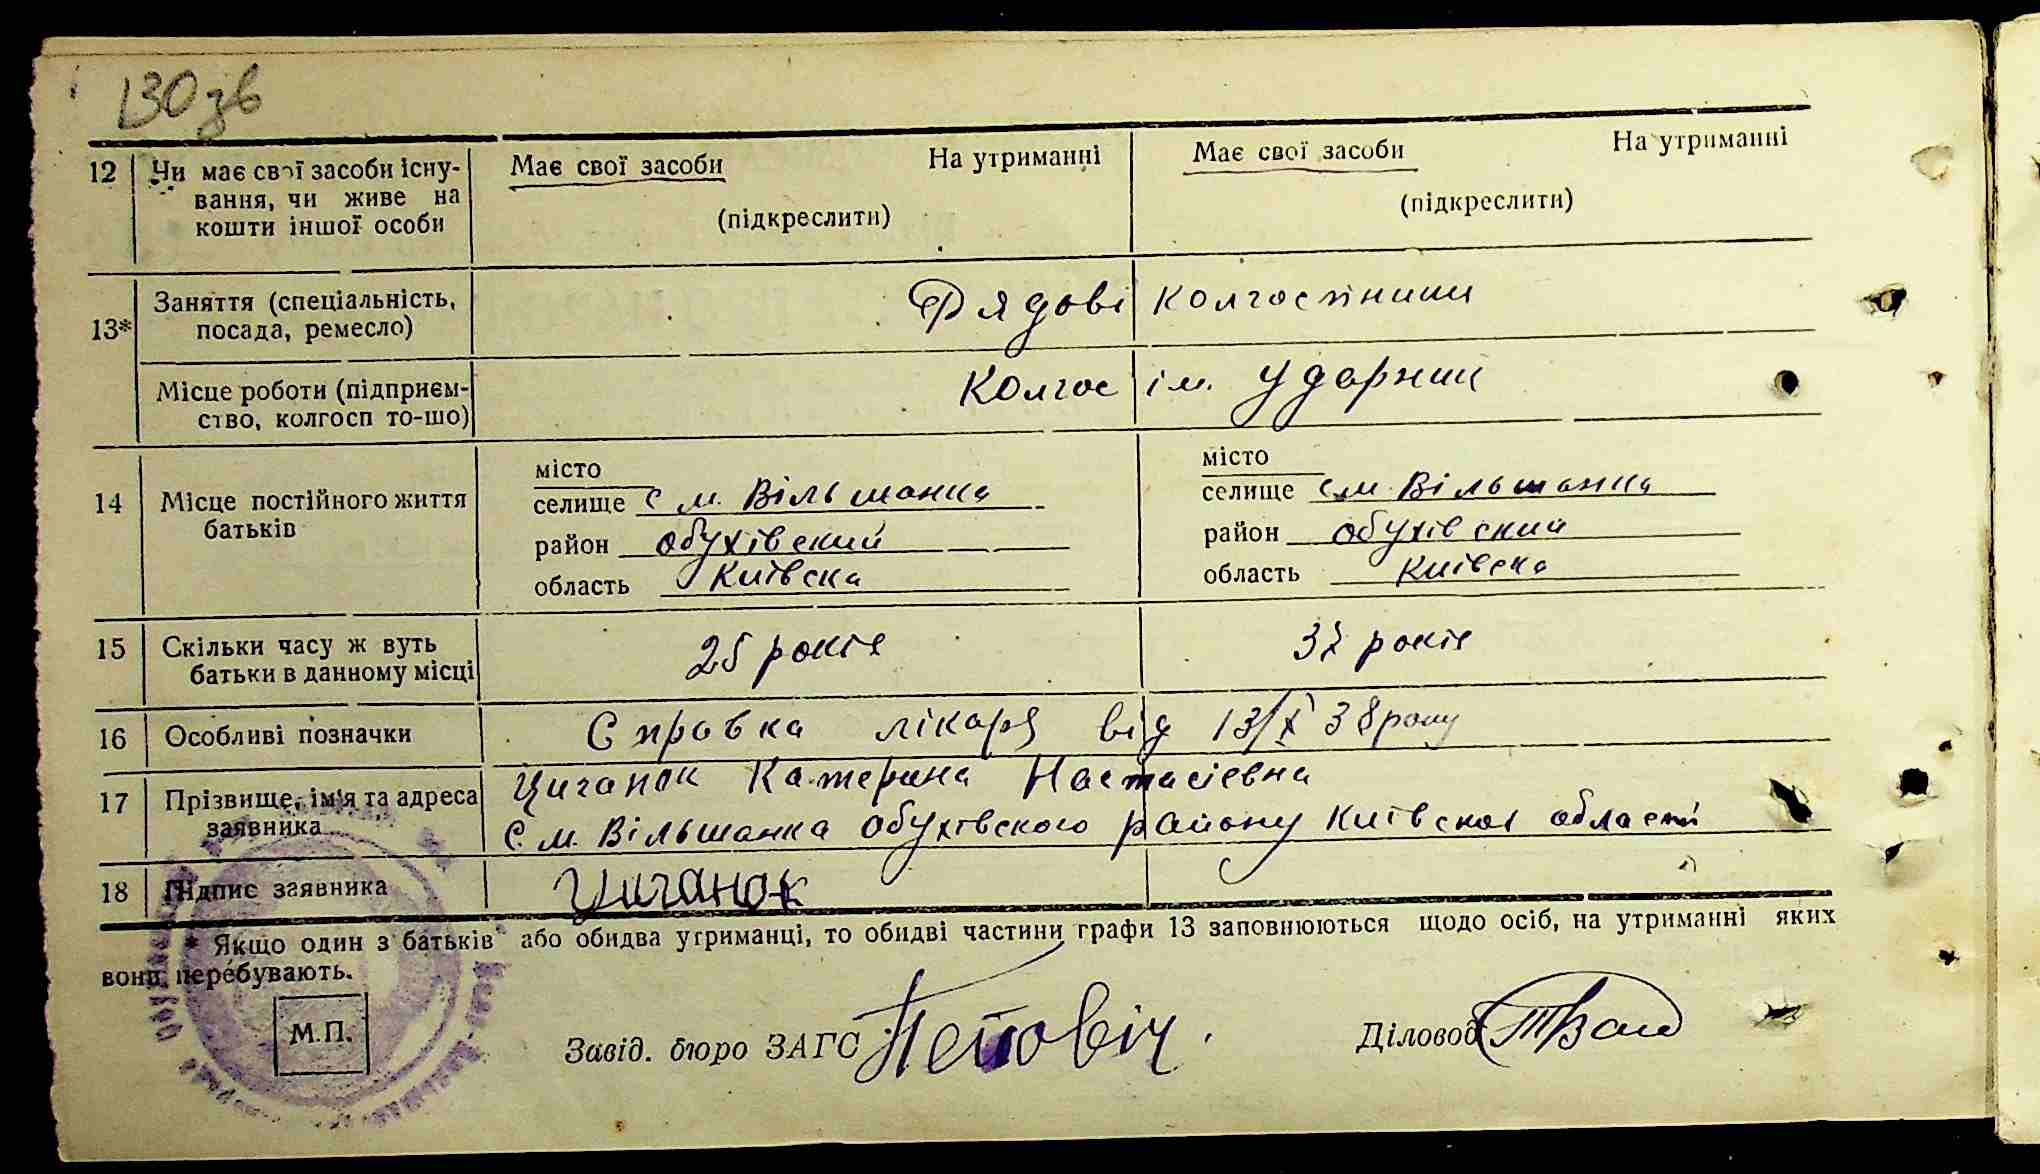 130 зв
12 Чи має свої засоби існу- Має свої засоби На утриманні Має свої засоби На утриманні
вання, чи живе на (підкреслити) (підкреслити)
кошти іншої особи
13* Заняття (спеціальність, Рядові колгоспники
посада, ремесло)
Місце роботи (підприєм- Колгос ім. Ударник
ство, колгосп то-шо)
місто місто
14 Місце постійного життя селище с м. Вільшанка селище с м. Вільшанка
батьків район обухівский район обухівский
область Київска область Київска
15 Скільки часу ж вуть 25 років 37 років
батьки в данному місці
16 Особливі позначки Справка лікаря від 13/X 38 року
17 Прізвище, ім'я та адреса Циганок Катерина Настасієвна
заявника С. м. Вільшанка Обухівского району Київскої області
18 Підпис заявника Циганок
* Якщо один з батьків або обидва утриманці, то обидві частини графи 13 заповнюються щодо осіб, на утриманні яких
вони перебувають.
М.П.
Завід. бюро ЗАГС Діловод